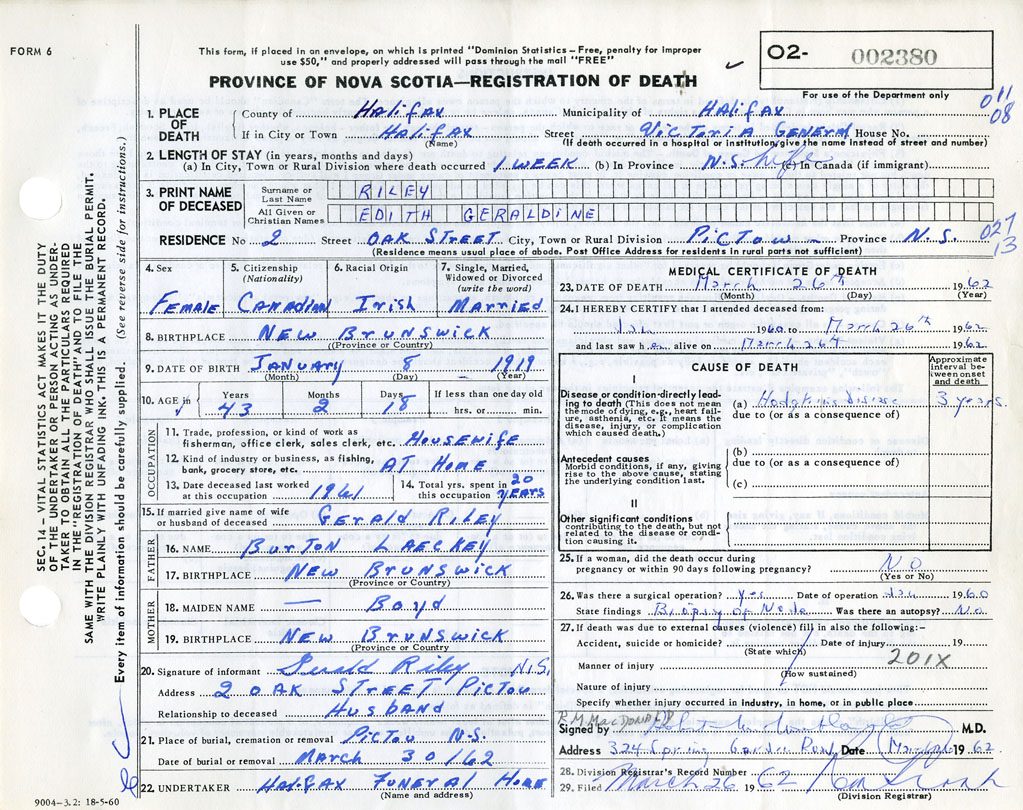 FORM 6
This form, if placed in an envelope, on which is printed "Dominion Statistics – Free, penalty for improper
use $50," and properly addressed will pass through the mail "FREE"
PROVINCE OF NOVA SCOTIA—REGISTRATION OF DEATH
O2- 002380
For use of the Department only
011
08
SEC. 14 – VITAL STATISTICS ACT MAKES IT THE DUTY
OF THE UNDERTAKER OR PERSON ACTING AS UNDER-
TAKER TO OBTAIN ALL THE PARTICULARS REQUIRED
IN THE "REGISTRATION OF DEATH" AND TO FILE THE
SAME WITH THE DIVISION REGISTRAR WHO SHALL ISSUE THE BURIAL PERMIT.
WRITE PLAINLY WITH UNFADING INK. THIS IS A PERMANENT RECORD.
Every item of information should be carefully supplied. (See reverse side for instructions.)
1. PLACE OF DEATH
County of Halifax Municipality of Halifax
If in City or Town Halifax Street Victoria General House No.
(Name) (If death occurred in a hospital or institution, give the name instead of street and number)
2. LENGTH OF STAY (in years, months and days)
(a) In City, Town or Rural Division where death occurred 1 week (b) In Province N.S. Life (c) In Canada (if immigrant)
3. PRINT NAME OF DECEASED
Surname or Last Name RILEY
All Given or Christian Names EDITH GERALDINE
RESIDENCE No 2 Street Oak Street City, Town or Rural Division Pictou – Province N.S.
027
13
(Residence means usual place of abode. Post Office Address for residents in rural parts not sufficient)
4. Sex Female
5. Citizenship (Nationality) Canadian
6. Racial Origin Irish
7. Single, Married, Widowed or Divorced (write the word) Married
8. BIRTHPLACE New Brunswick
(Province or Country)
9. DATE OF BIRTH January 8 1919
(Month) (Day) (Year)
10. AGE in Years 43 Months 2 Days 18 If less than one day old hrs. or min.
OCCUPATION
11. Trade, profession, or kind of work as
fisherman, office clerk, sales clerk, etc. Housewife
12. Kind of industry or business, as fishing,
bank, grocery store, etc. At Home
13. Date deceased last worked
at this occupation 1961
14. Total yrs. spent in
this occupation 20 years
15. If married give name of wife
or husband of deceased Gerald Riley
FATHER
16. NAME Burton Laeckey
17. BIRTHPLACE New Brunswick
(Province or Country)
MOTHER
18. MAIDEN NAME — Boyd
19. BIRTHPLACE New Brunswick
(Province or Country
20. Signature of informant Gerald Riley N.S.
Address 2 Oak Street Pictou
Relationship to deceased Husband
21. Place of burial, cremation or removal Pictou N.S.
Date of burial or removal March 30/62
22. UNDERTAKER Halifax Funeral Home
(Name and address)
9004–3.2: 18-5-60
MEDICAL CERTIFICATE OF DEATH
23. DATE OF DEATH March 26th 1962
(Month) (Day) (Year)
24. I HEREBY CERTIFY that I attended deceased from:
Jan 1960 to March 26th 1962
and last saw her alive on March 26th 1962
CAUSE OF DEATH
Approximate interval between onset and death
I
Disease or condition directly lead-
ing to death (This does not mean
the mode of dying, e.g., heart fail-
ure, asthenia, etc. It means the
disease, injury, or complication
which caused death.)
(a) Hodgkins disease 3 years.
due to (or as a consequence of)
Antecedent causes
Morbid conditions, if any, giving
rise to the above cause, stating
the underlying condition last.
(b)
due to (or as a consequence of)
(c)
II
Other significant conditions
contributing to the death, but not
related to the disease or condi-
tion causing it.
25. If a woman, did the death occur during
pregnancy or within 90 days following pregnancy? No
(Yes or No)
26. Was there a surgical operation? yes Date of operation Jan 1960
State findings Biopsy of Node Was there an autopsy? No
27. If death was due to external causes (violence) fill in also the following:–
Accident, suicide or homicide? Date of injury 19
(State which)
201X
Manner of injury
(How sustained)
Nature of injury
Specify whether injury occurred in industry, in home, or in public place
R.M. MacDonald
Signed by M.D.
Address 324 Spring Garden Road Date March 26 1962
28. Division Registrar's Record Number
29. Filed March 26 1962
(Division Registrar)